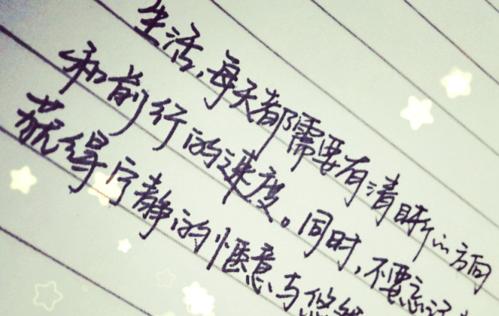 生活,每天都需要有清晰的方向
和前行的速度。同时,不要忘记
获得宁静的惬意与悠